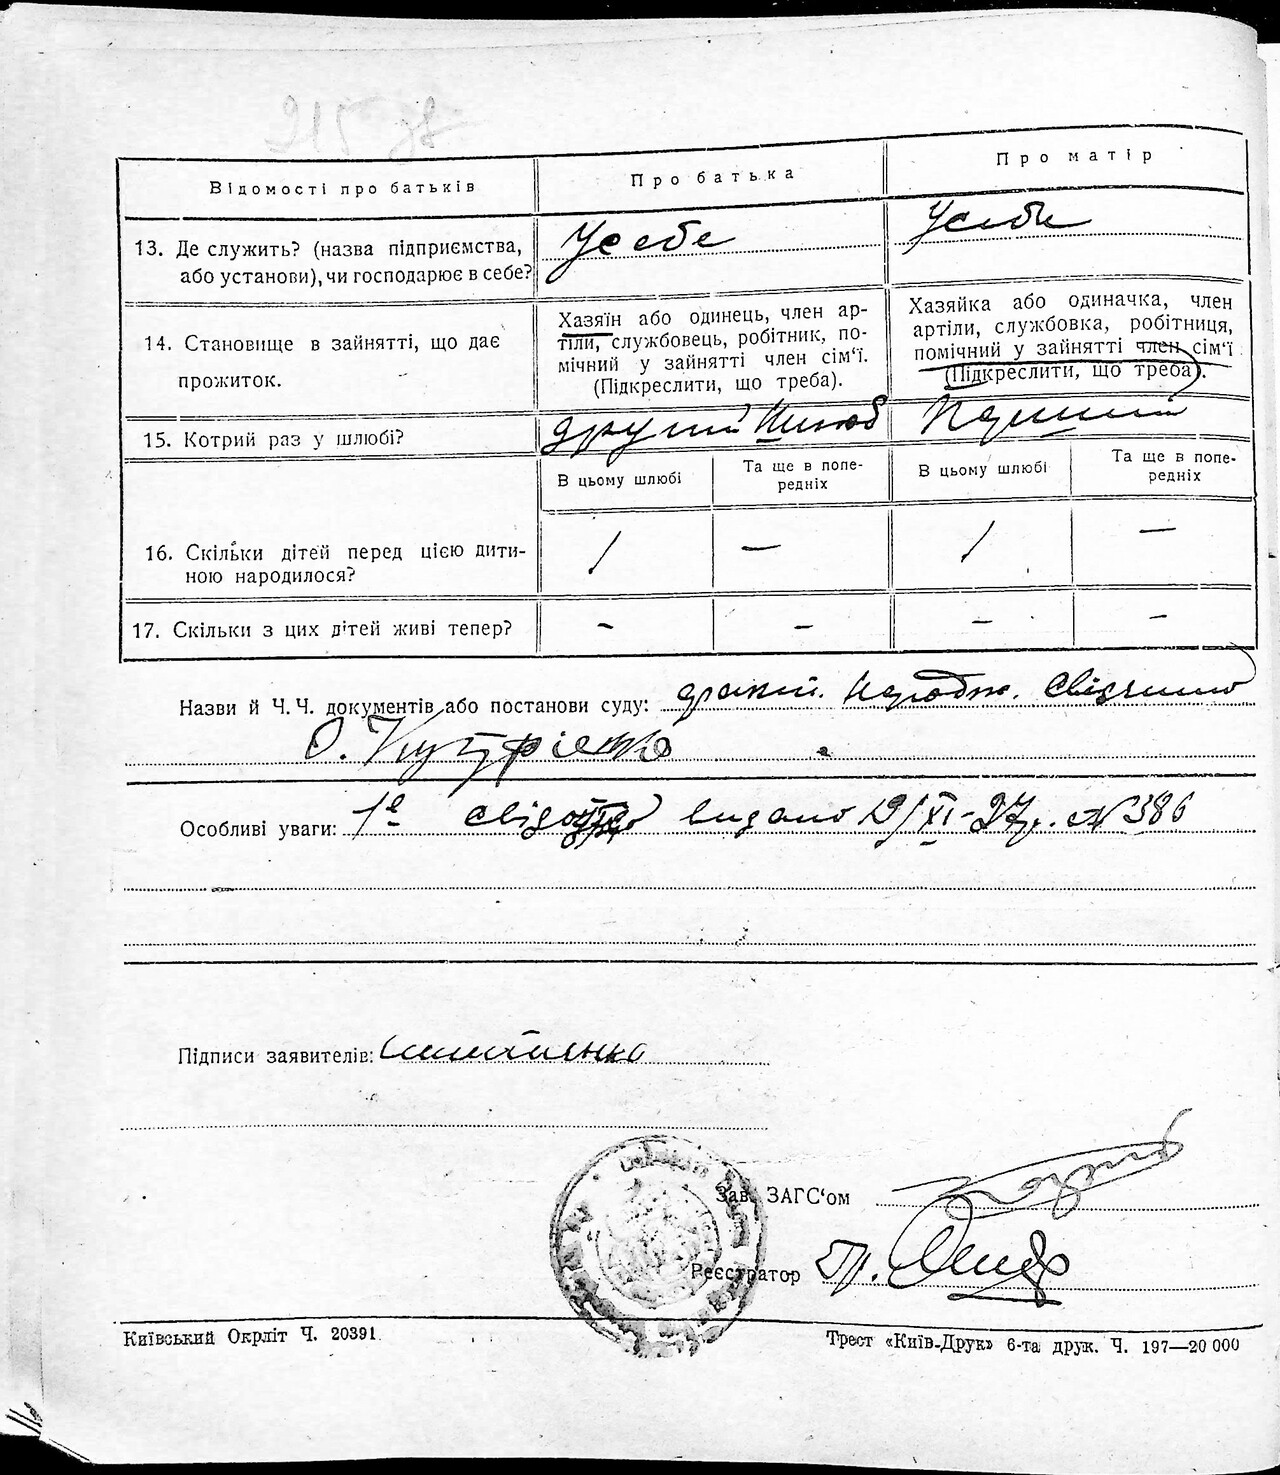 215 зв
Відомості про батьків
Про батька
Про матір
13. Де служить? (назва підприємства,
або установи), чи господарює в себе?
У себе
У себе
14. Становище в зайнятті, що дає
прожиток.
Хазяїн або одинець, член ар-
тіли, службовець, робітник, по-
мічний у зайнятті член сім'ї.
(Підкреслити, що треба).
Хазяйка або одиначка, член
артіли, службовка, робітниця,
помічний у зайнятті член сім'ї
(Підкреслити, що треба).
15. Котрий раз у шлюбі?
другий шлюб
Перший
В цьому шлюбі
Та ще в попе-
редніх
В цьому шлюбі
Та ще в попе-
редніх
16. Скільки дітей перед цією дити-
ною народилося?
/ — / —
17. Скільки з цих дітей живі тепер?
- - - -
Назви й Ч. Ч. документів або постанови суду: народж.
О.
Особливі уваги: 1е видано 19/XI-27р. № 386
Підписи заявителів:
Зав. ЗАГС'ом
Реєстратор
Київський Окрліт Ч. 20391.
Трест «Київ-Друк» 6-та друк. Ч. 197—20 000